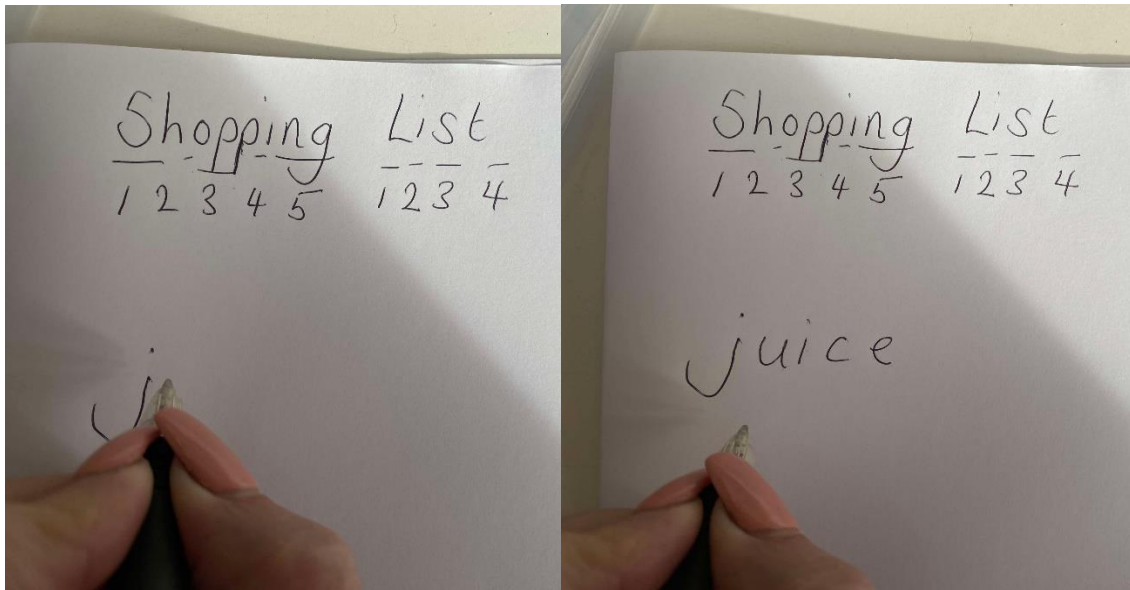 Shopping List
1 2 3 4 5 1 2 3 4
j
Shopping List
1 2 3 4 5 1 2 3 4
juice